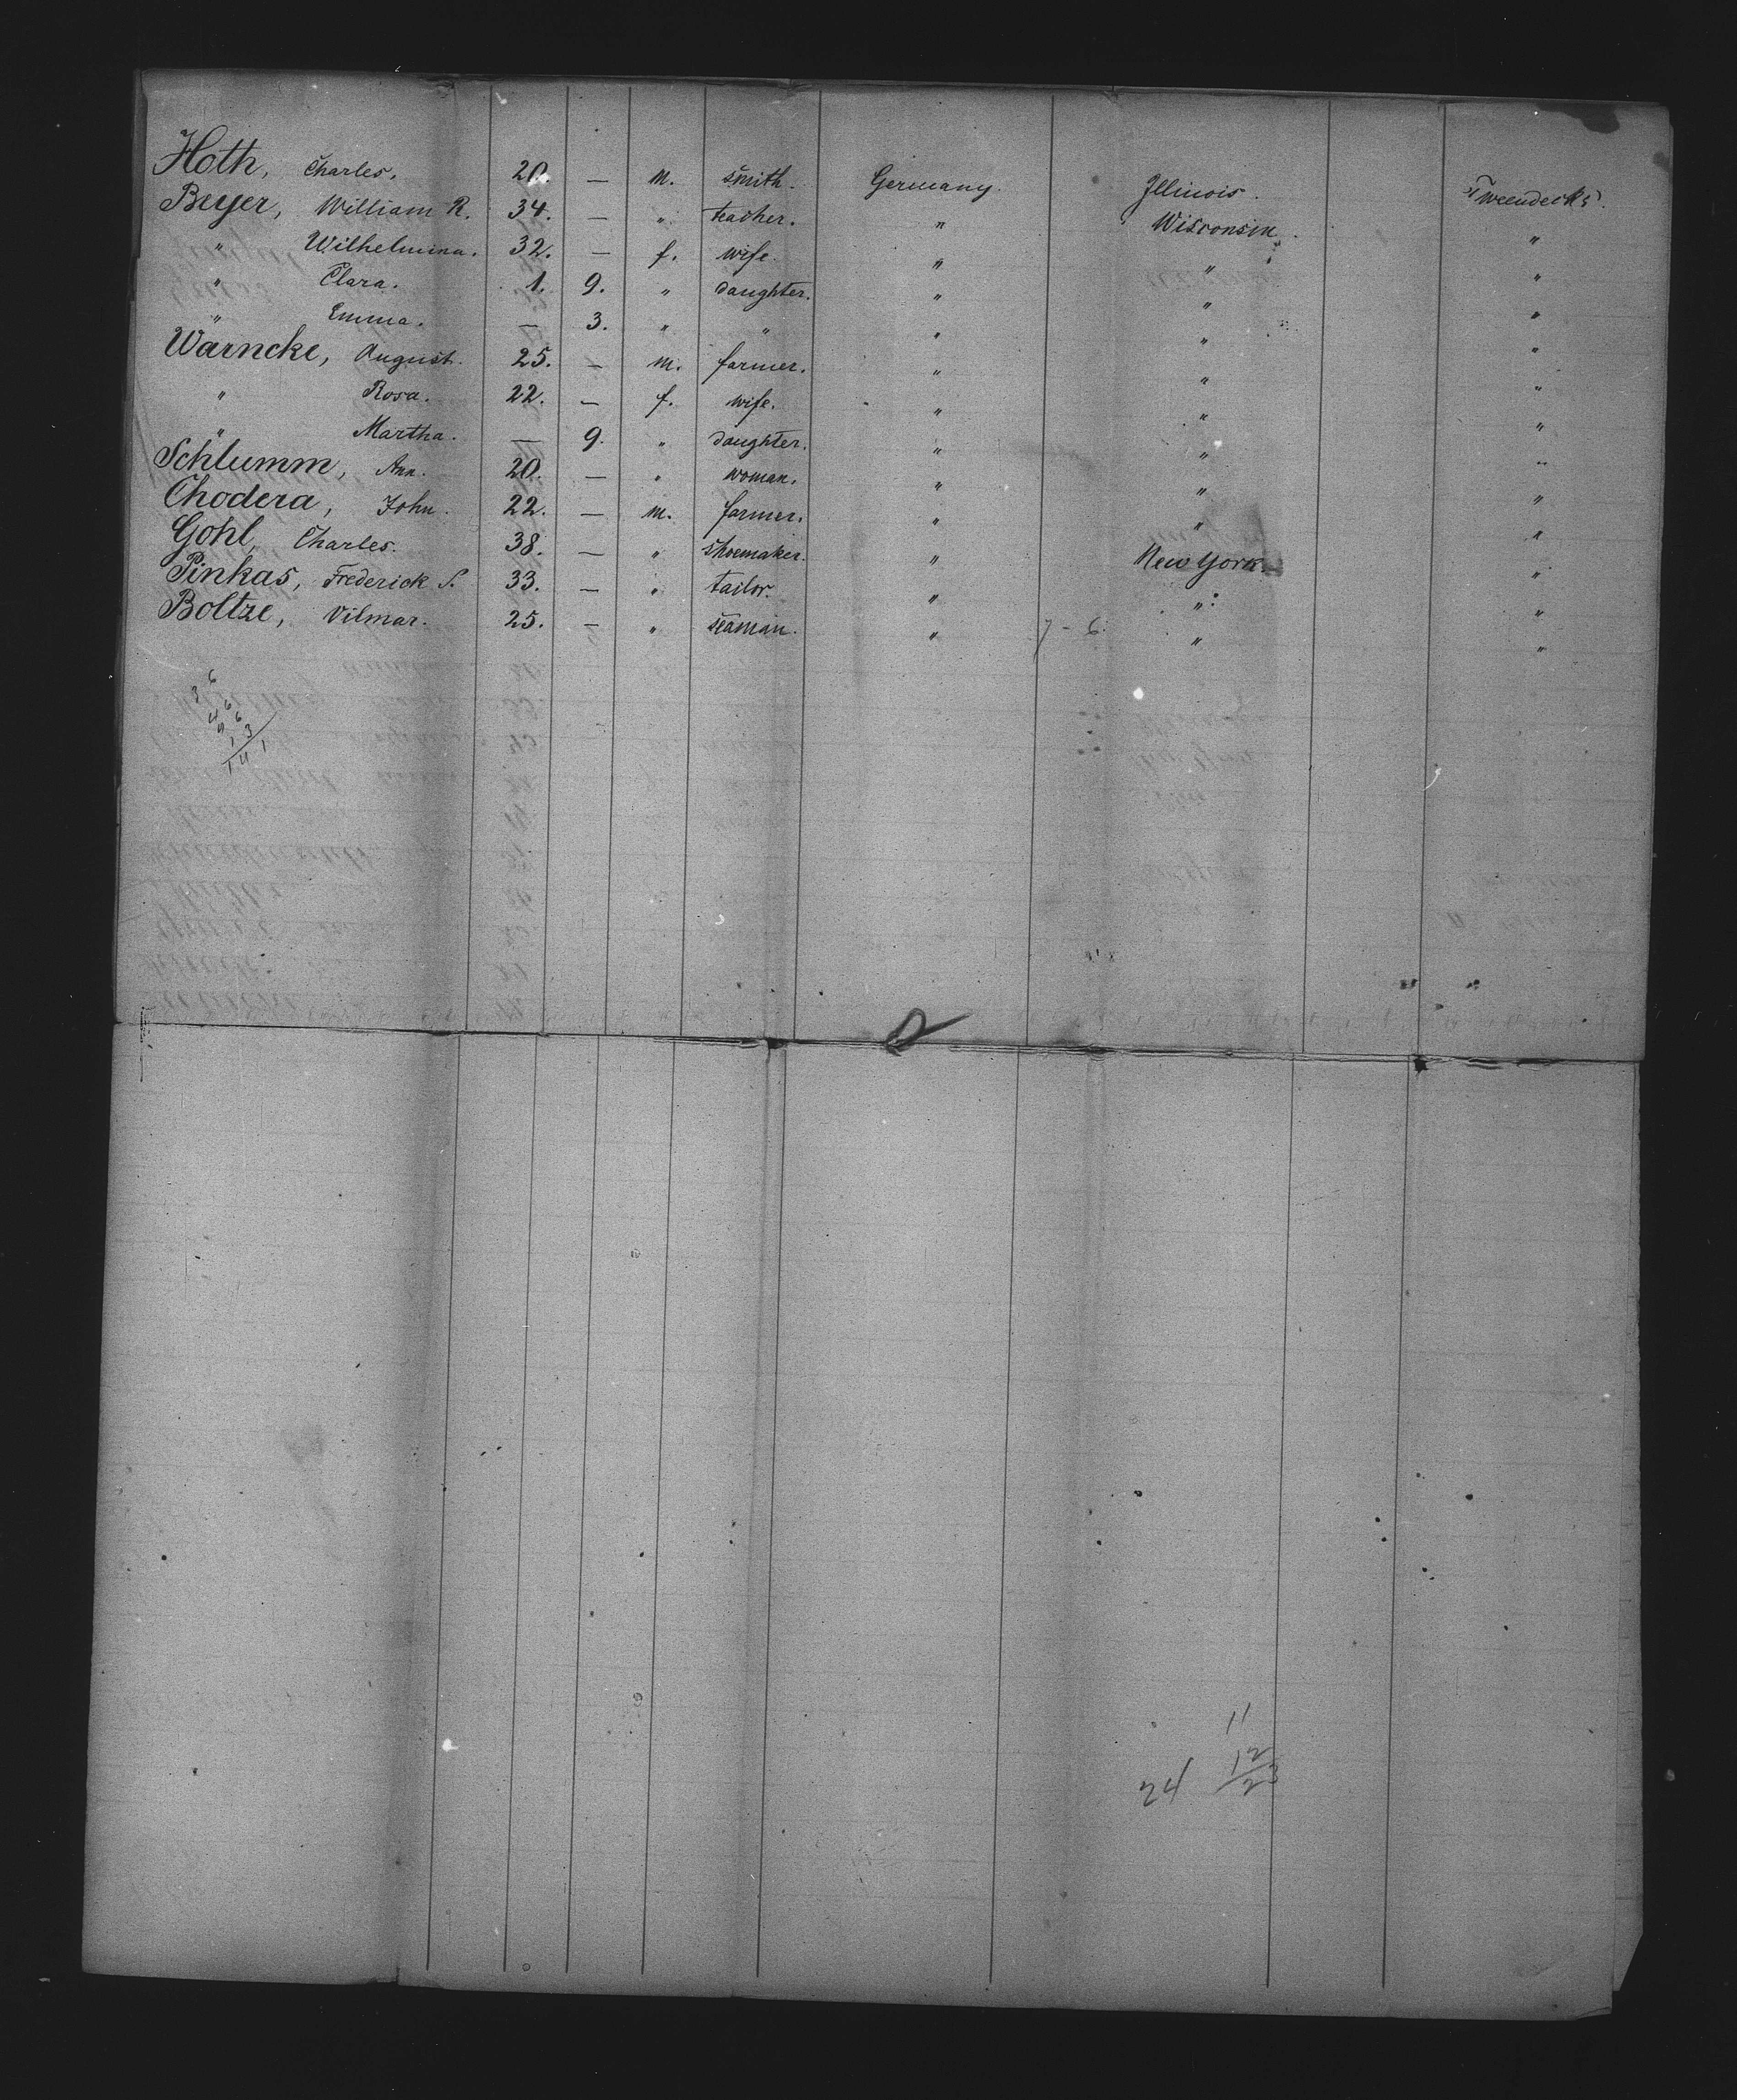 Hoth, Charles. 20. — m. smith. Germany. Illinois. Tweendecks.
Beyer, William R. 34. — " teacher. " Wisconsin. "
" Wilhelmina. 32. — f. wife. " " "
" Clara. 1. 9. " daughter. " " "
" Emma. — 3. " " " " "
Warncke, August. 25. — m. farmer. " " "
" Rosa. 22. — f. wife. " " "
" Martha. — 9. " daughter. " " "
Schlumm, Ann. 20. — " woman. " " "
Chodera, John. 22. — m. farmer. " " "
Gohl, Charles. 38. — " shoemaker. " New York. "
Pinkas, Frederick S. 33. — " tailor. " " "
Boltze, Vilmar. 25. — " seaman. " 7-6. " "
11
12
24 23